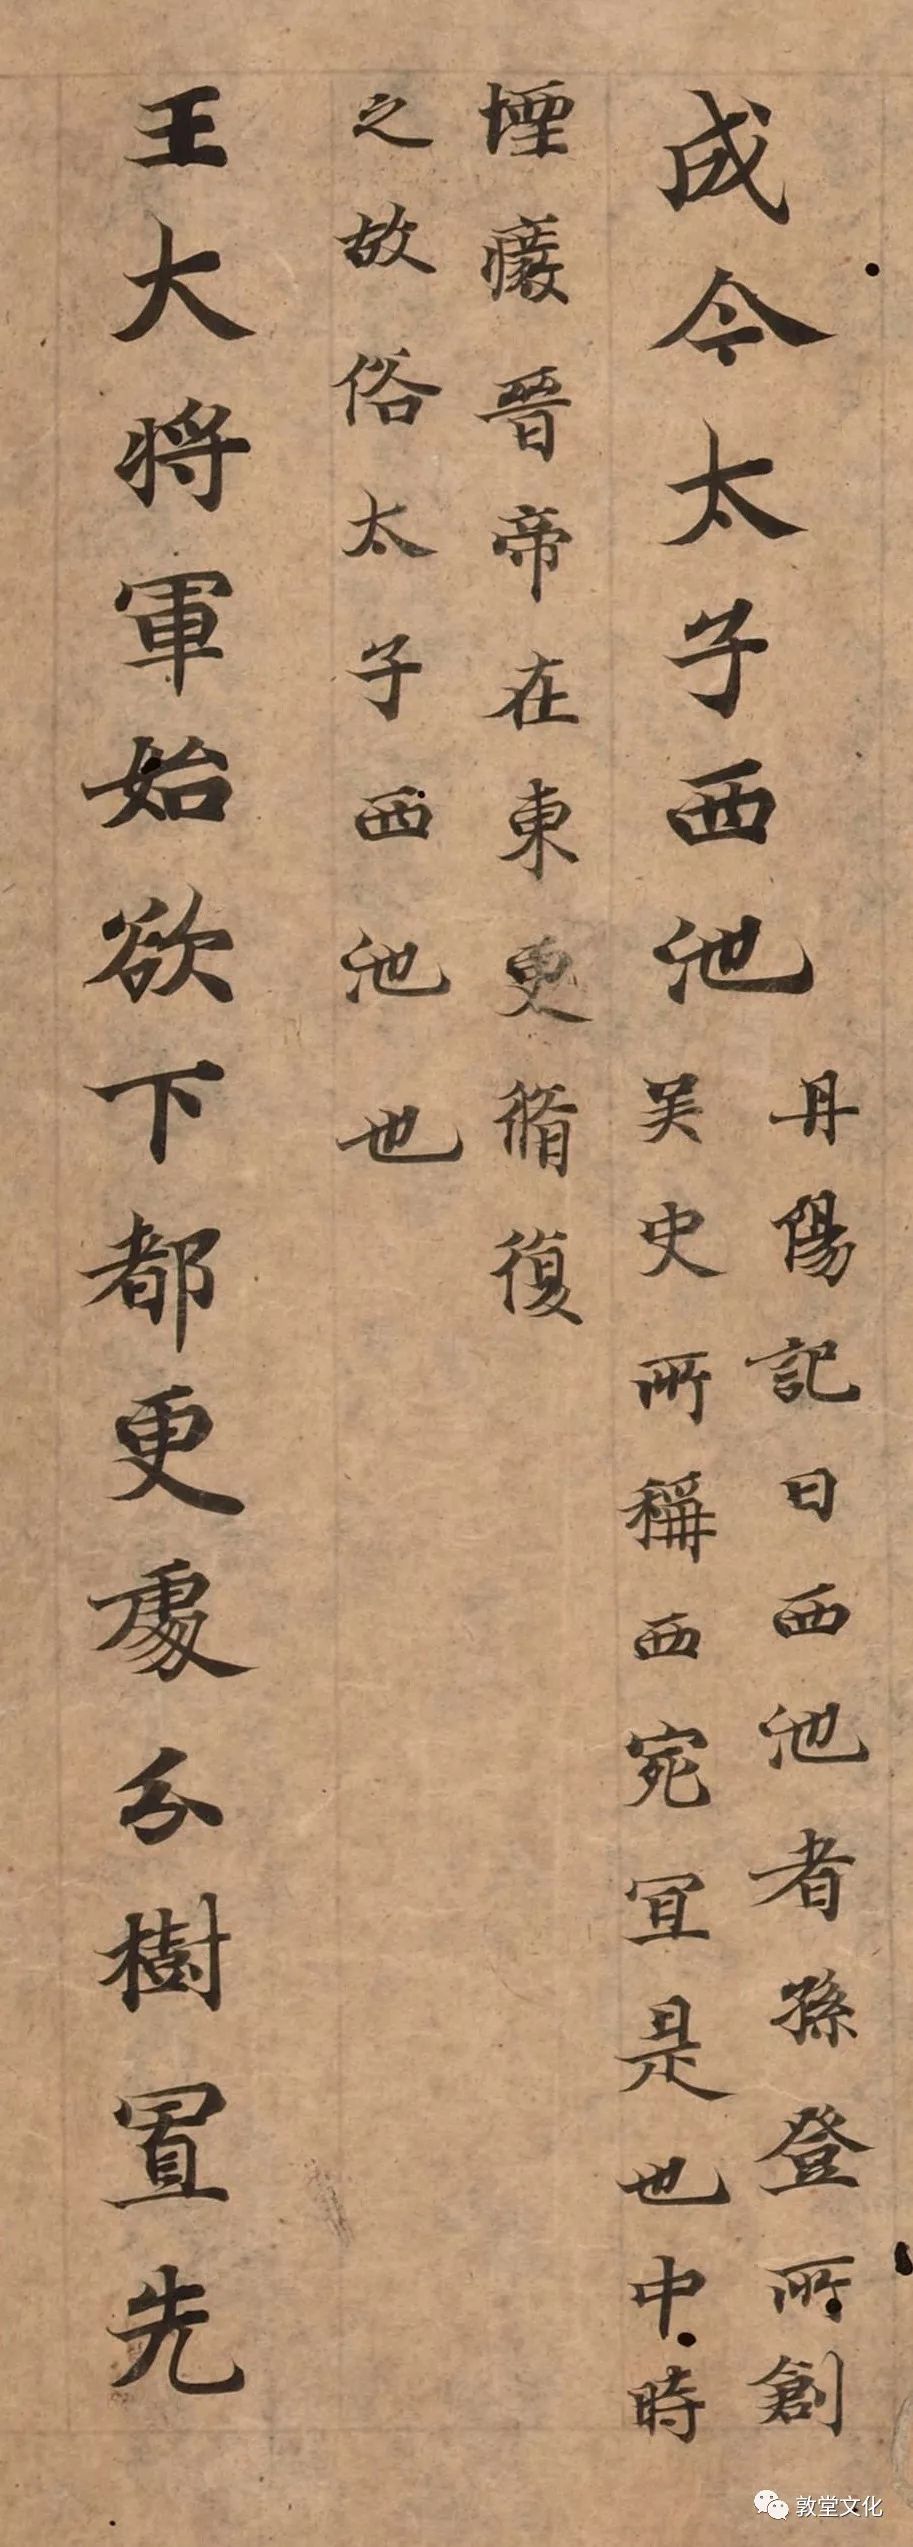 成今太子西池
丹陽記曰西池者孫登所創
吴史所稱西宛冝是也中時
堙癈晉帝在東更脩復
之故俗太子西池也
王大将軍始欲下都更處分樹置先
敦堂文化